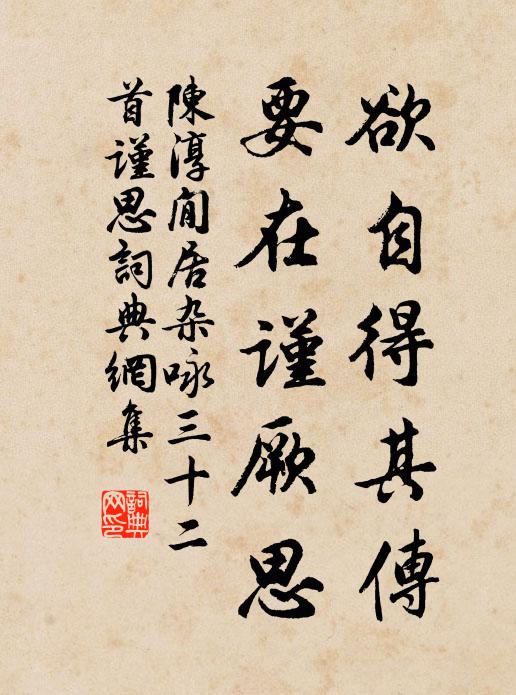 欲自得其傳
要在謹厥思
陳淳閒居杂咏三十二
首謹思詞典網集
詞典
网印